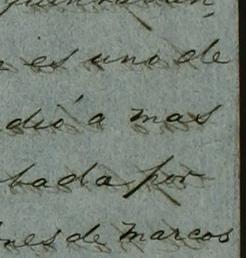 es uno de
dió a mas
bada por
nes de marcos